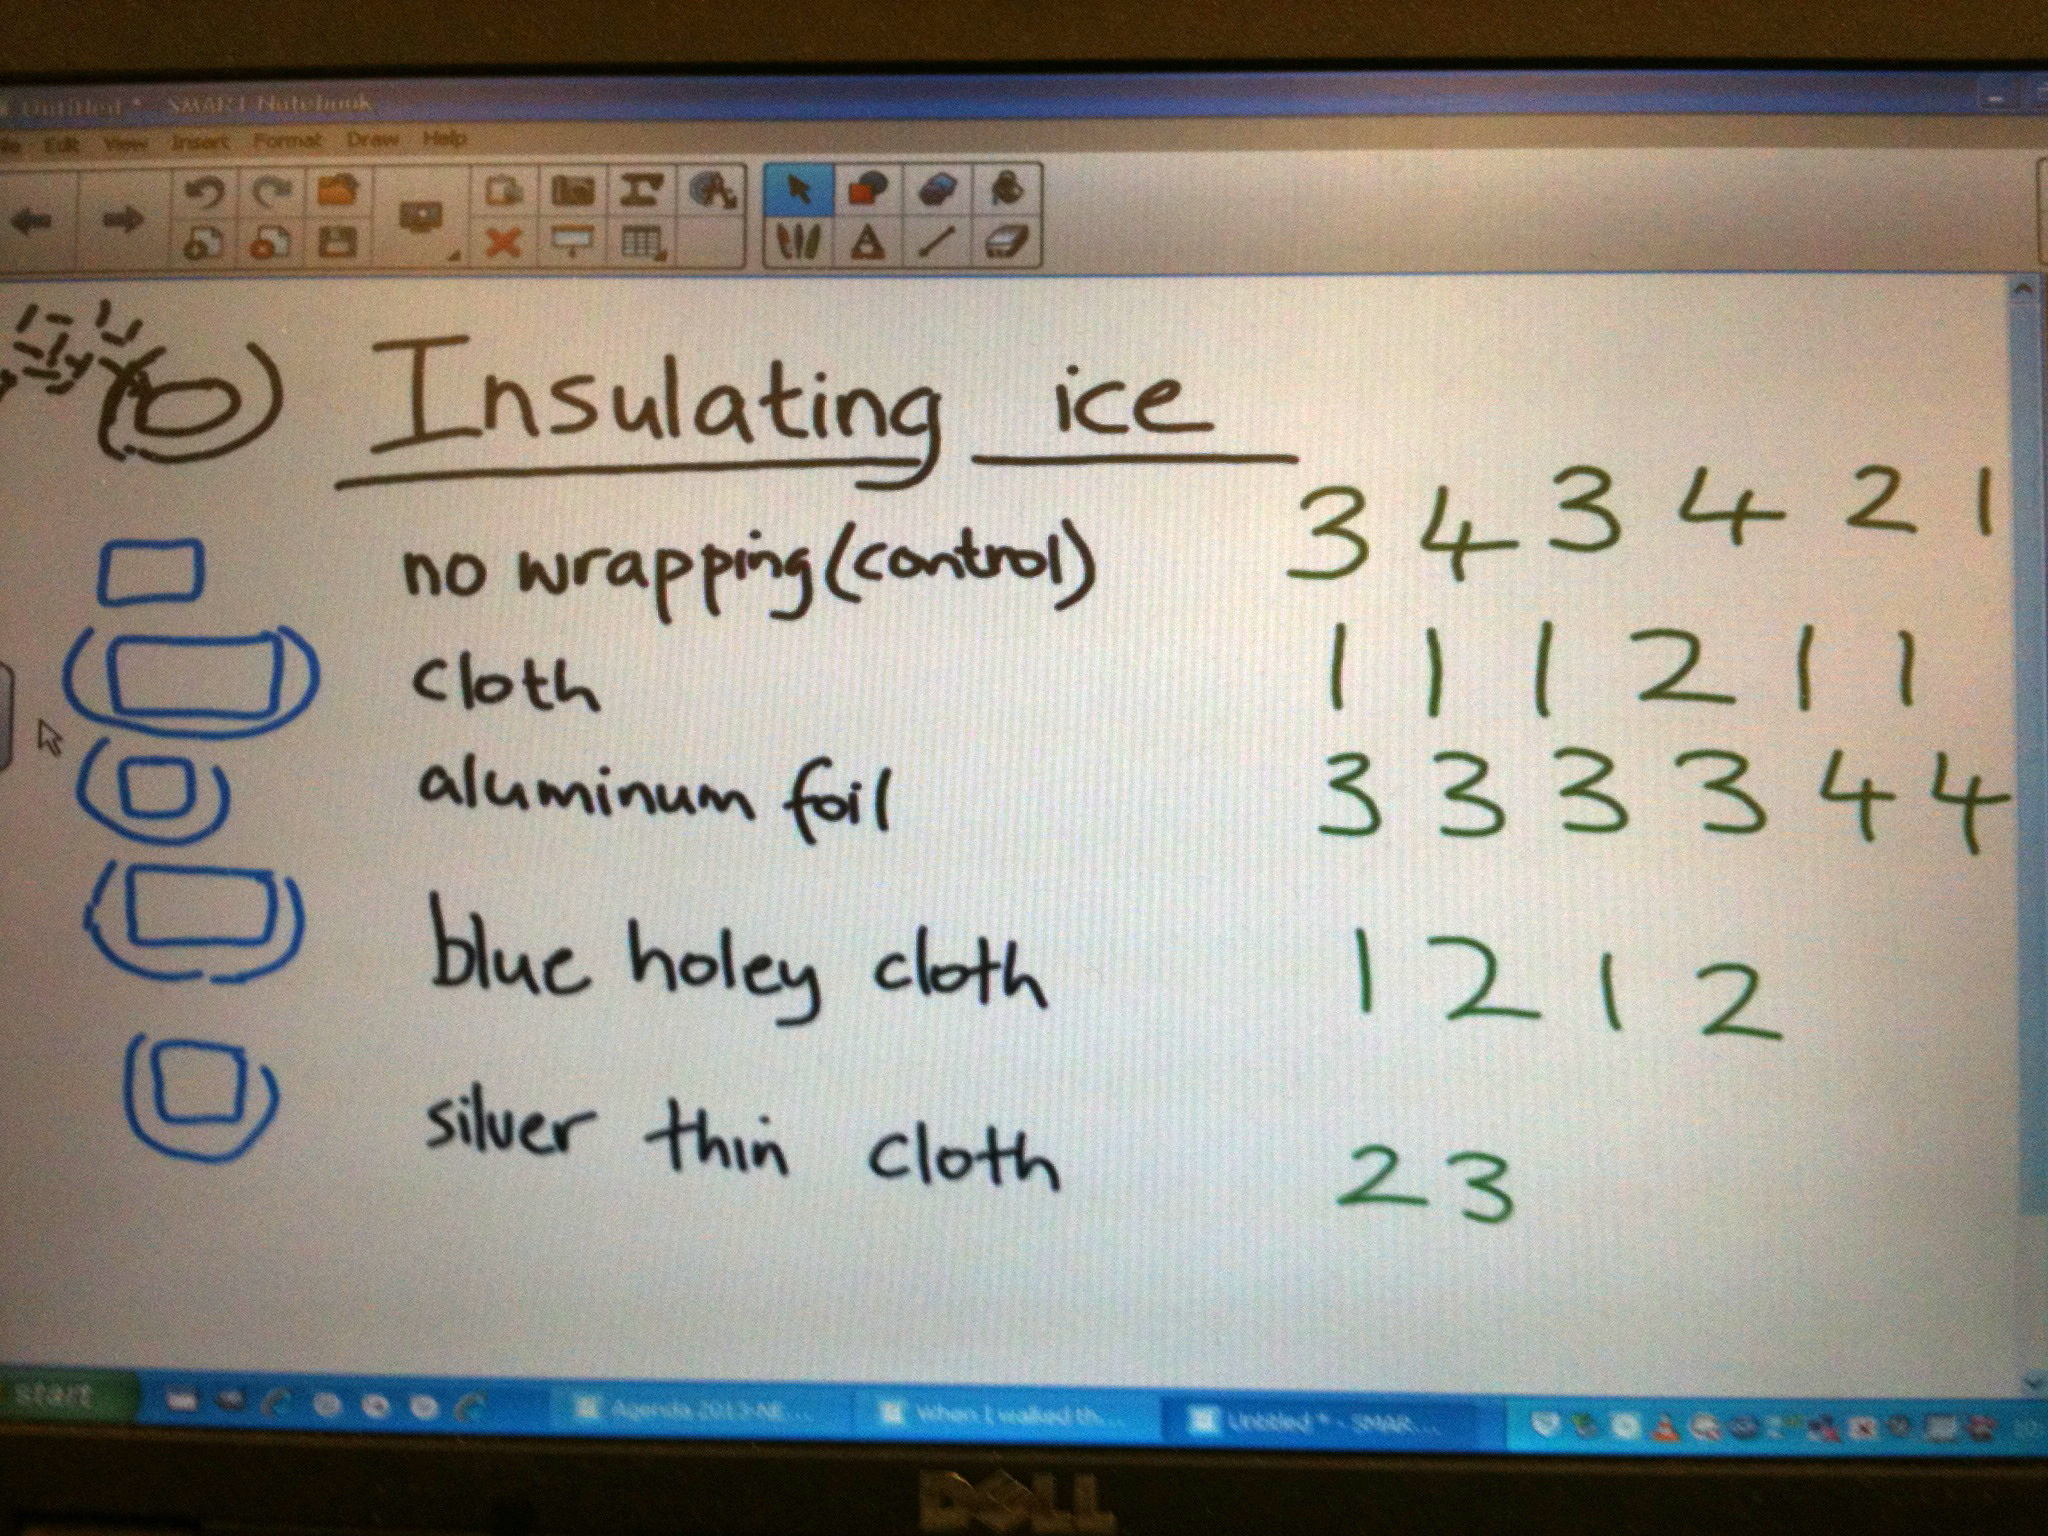 Untitled * - SMART Notebook
Edit View Insert Format Draw Help
Insulating ice
no wrapping (control) 3 4 3 4 2 1
cloth 1 1 1 2 1 1
aluminum foil 3 3 3 3 4 4
blue holey cloth 1 2 1 2
silver thin cloth 2 3
start Agenda 2013-NE... When I walked th... Untitled * - SMAR...
DELL